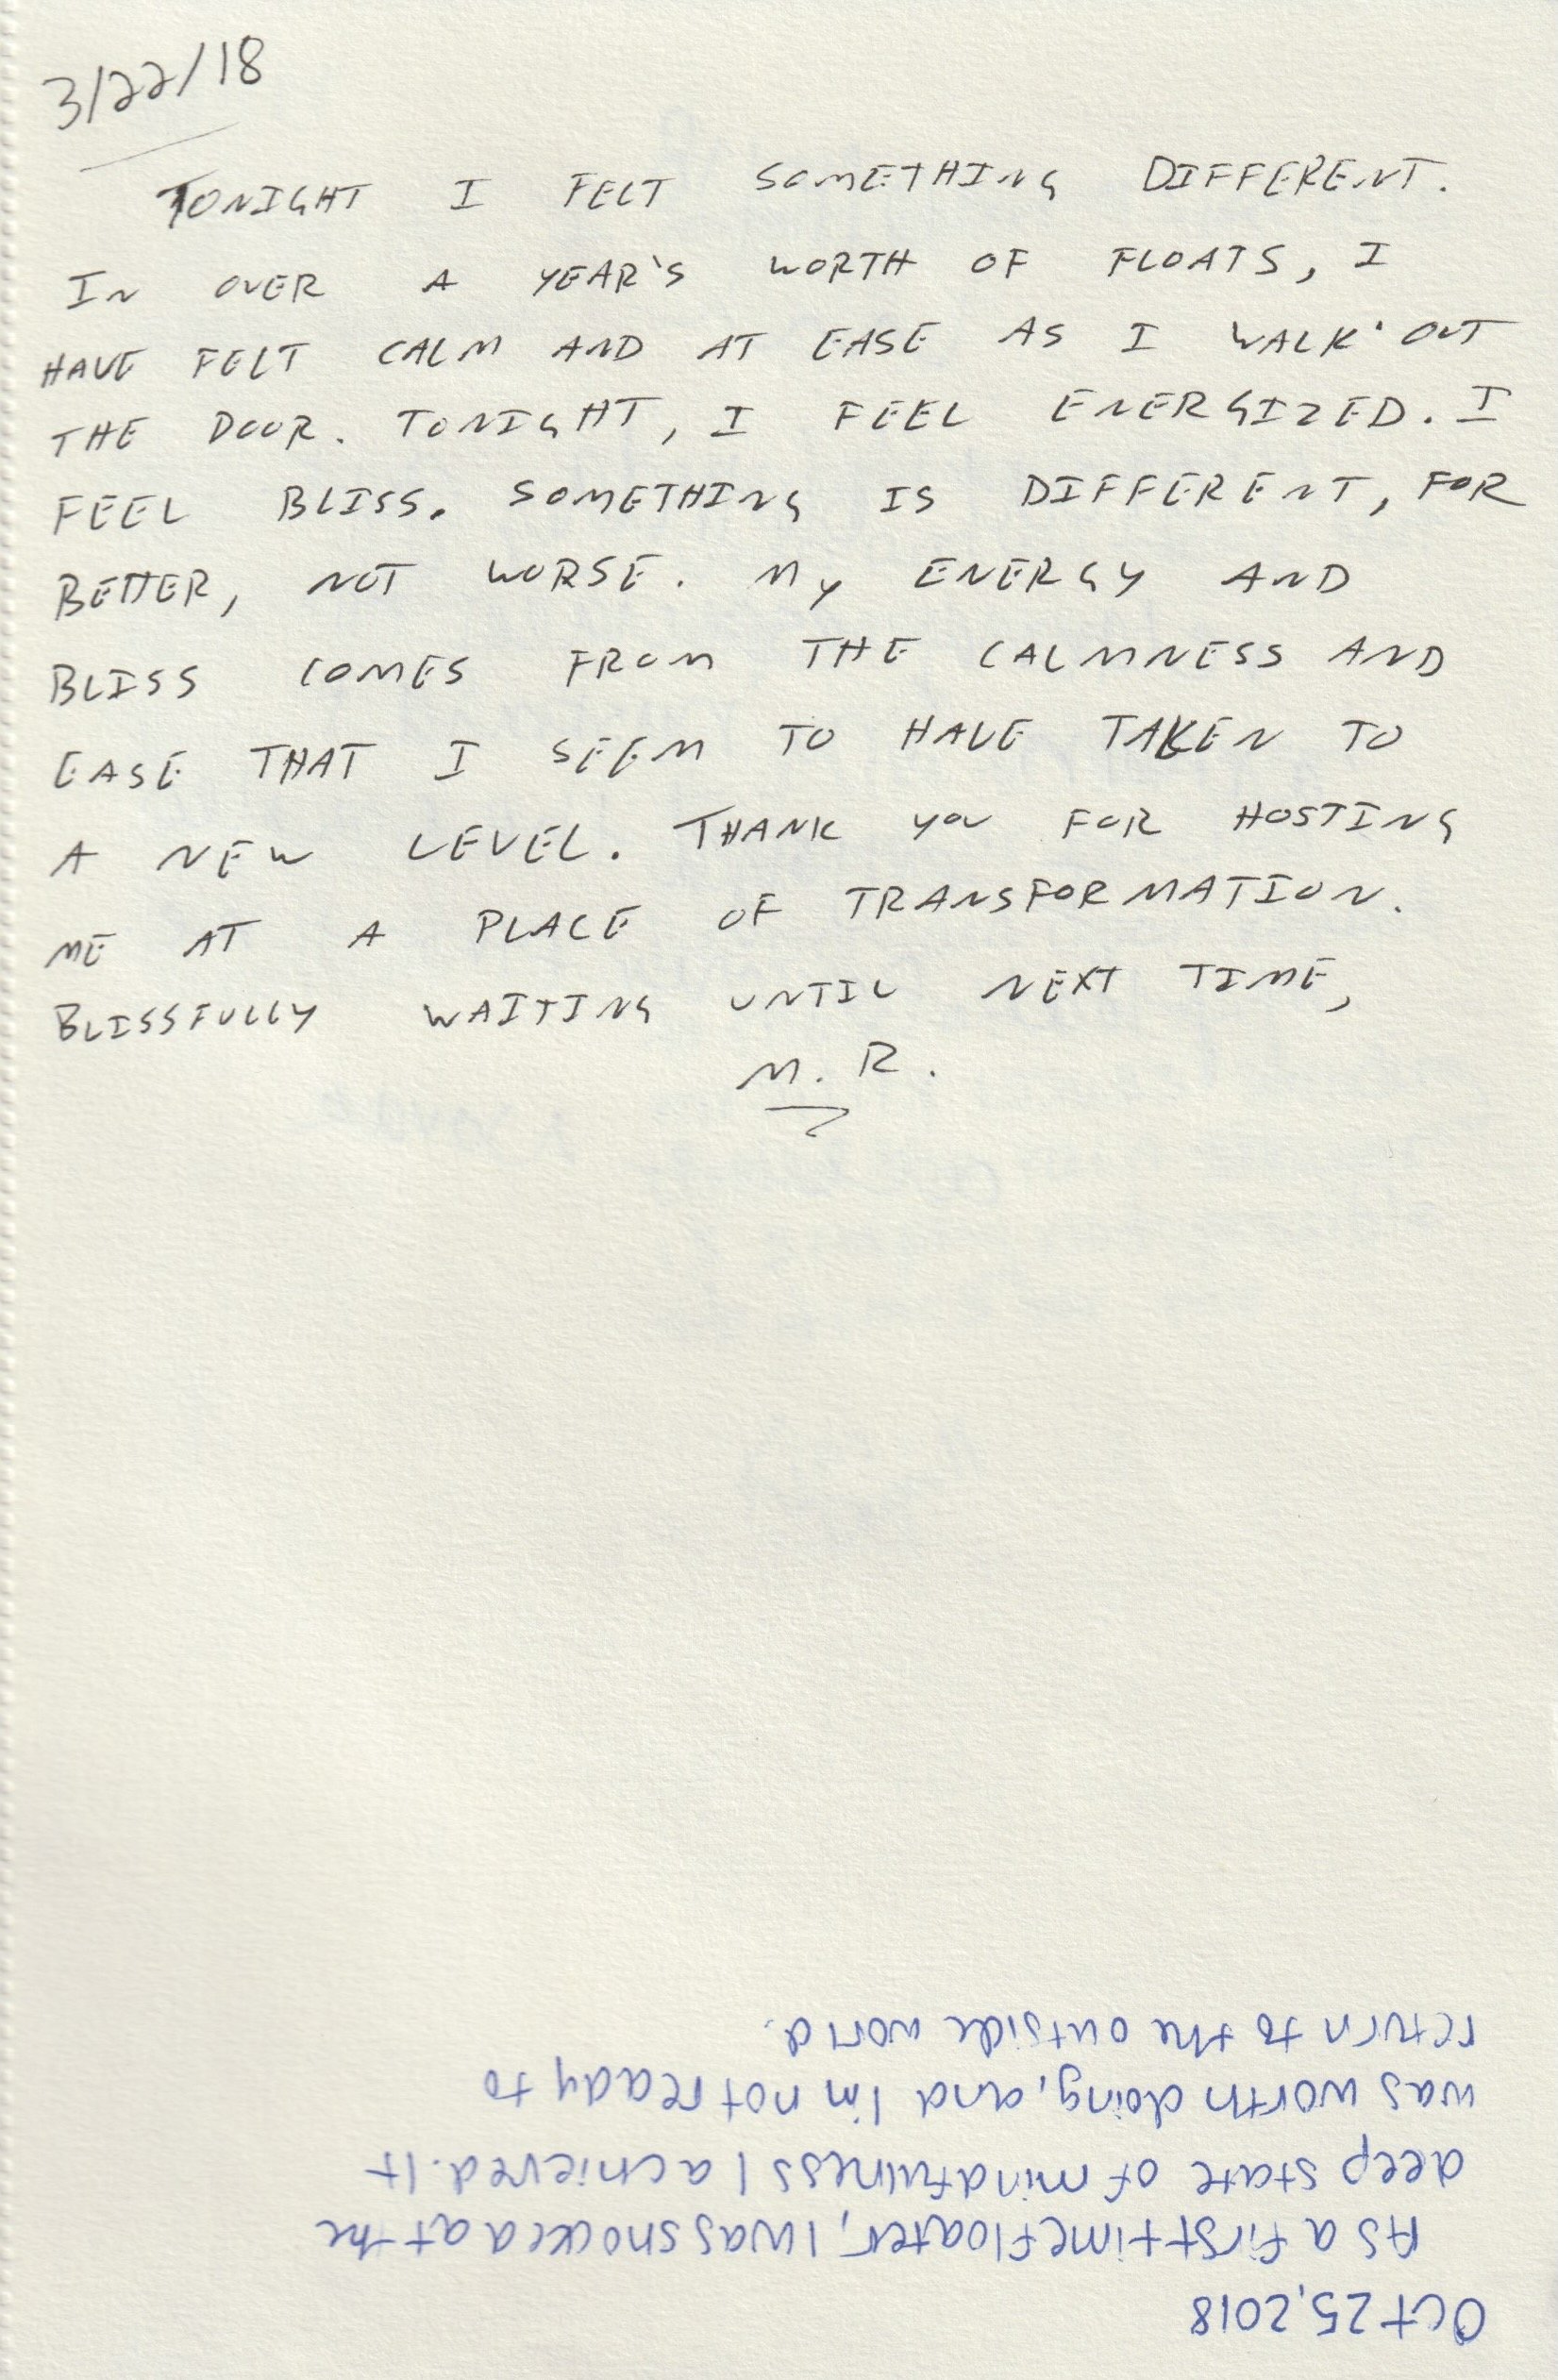 3/22/18
TONIGHT I FELT SOMETHING DIFFERENT.
IN OVER A YEAR'S WORTH OF FLOATS, I
HAVE FELT CALM AND AT EASE AS I WALK OUT
THE DOOR. TONIGHT, I FEEL ENERGIZED. I
FEEL BLISS. SOMETHING IS DIFFERENT, FOR
BETTER, NOT WORSE. MY ENERGY AND
BLISS COMES FROM THE CALMNESS AND
EASE THAT I SEEM TO HAVE TAKEN TO
A NEW LEVEL. THANK YOU FOR HOSTING
ME AT A PLACE OF TRANSFORMATION.
BLISSFULLY WAITING UNTIL NEXT TIME,
M. R.
Oct 25, 2018
As a first time floater, I was shocked at the
deep state of mindfulness I achieved. It
was worth doing, and I'm not ready to
return to the outside world.